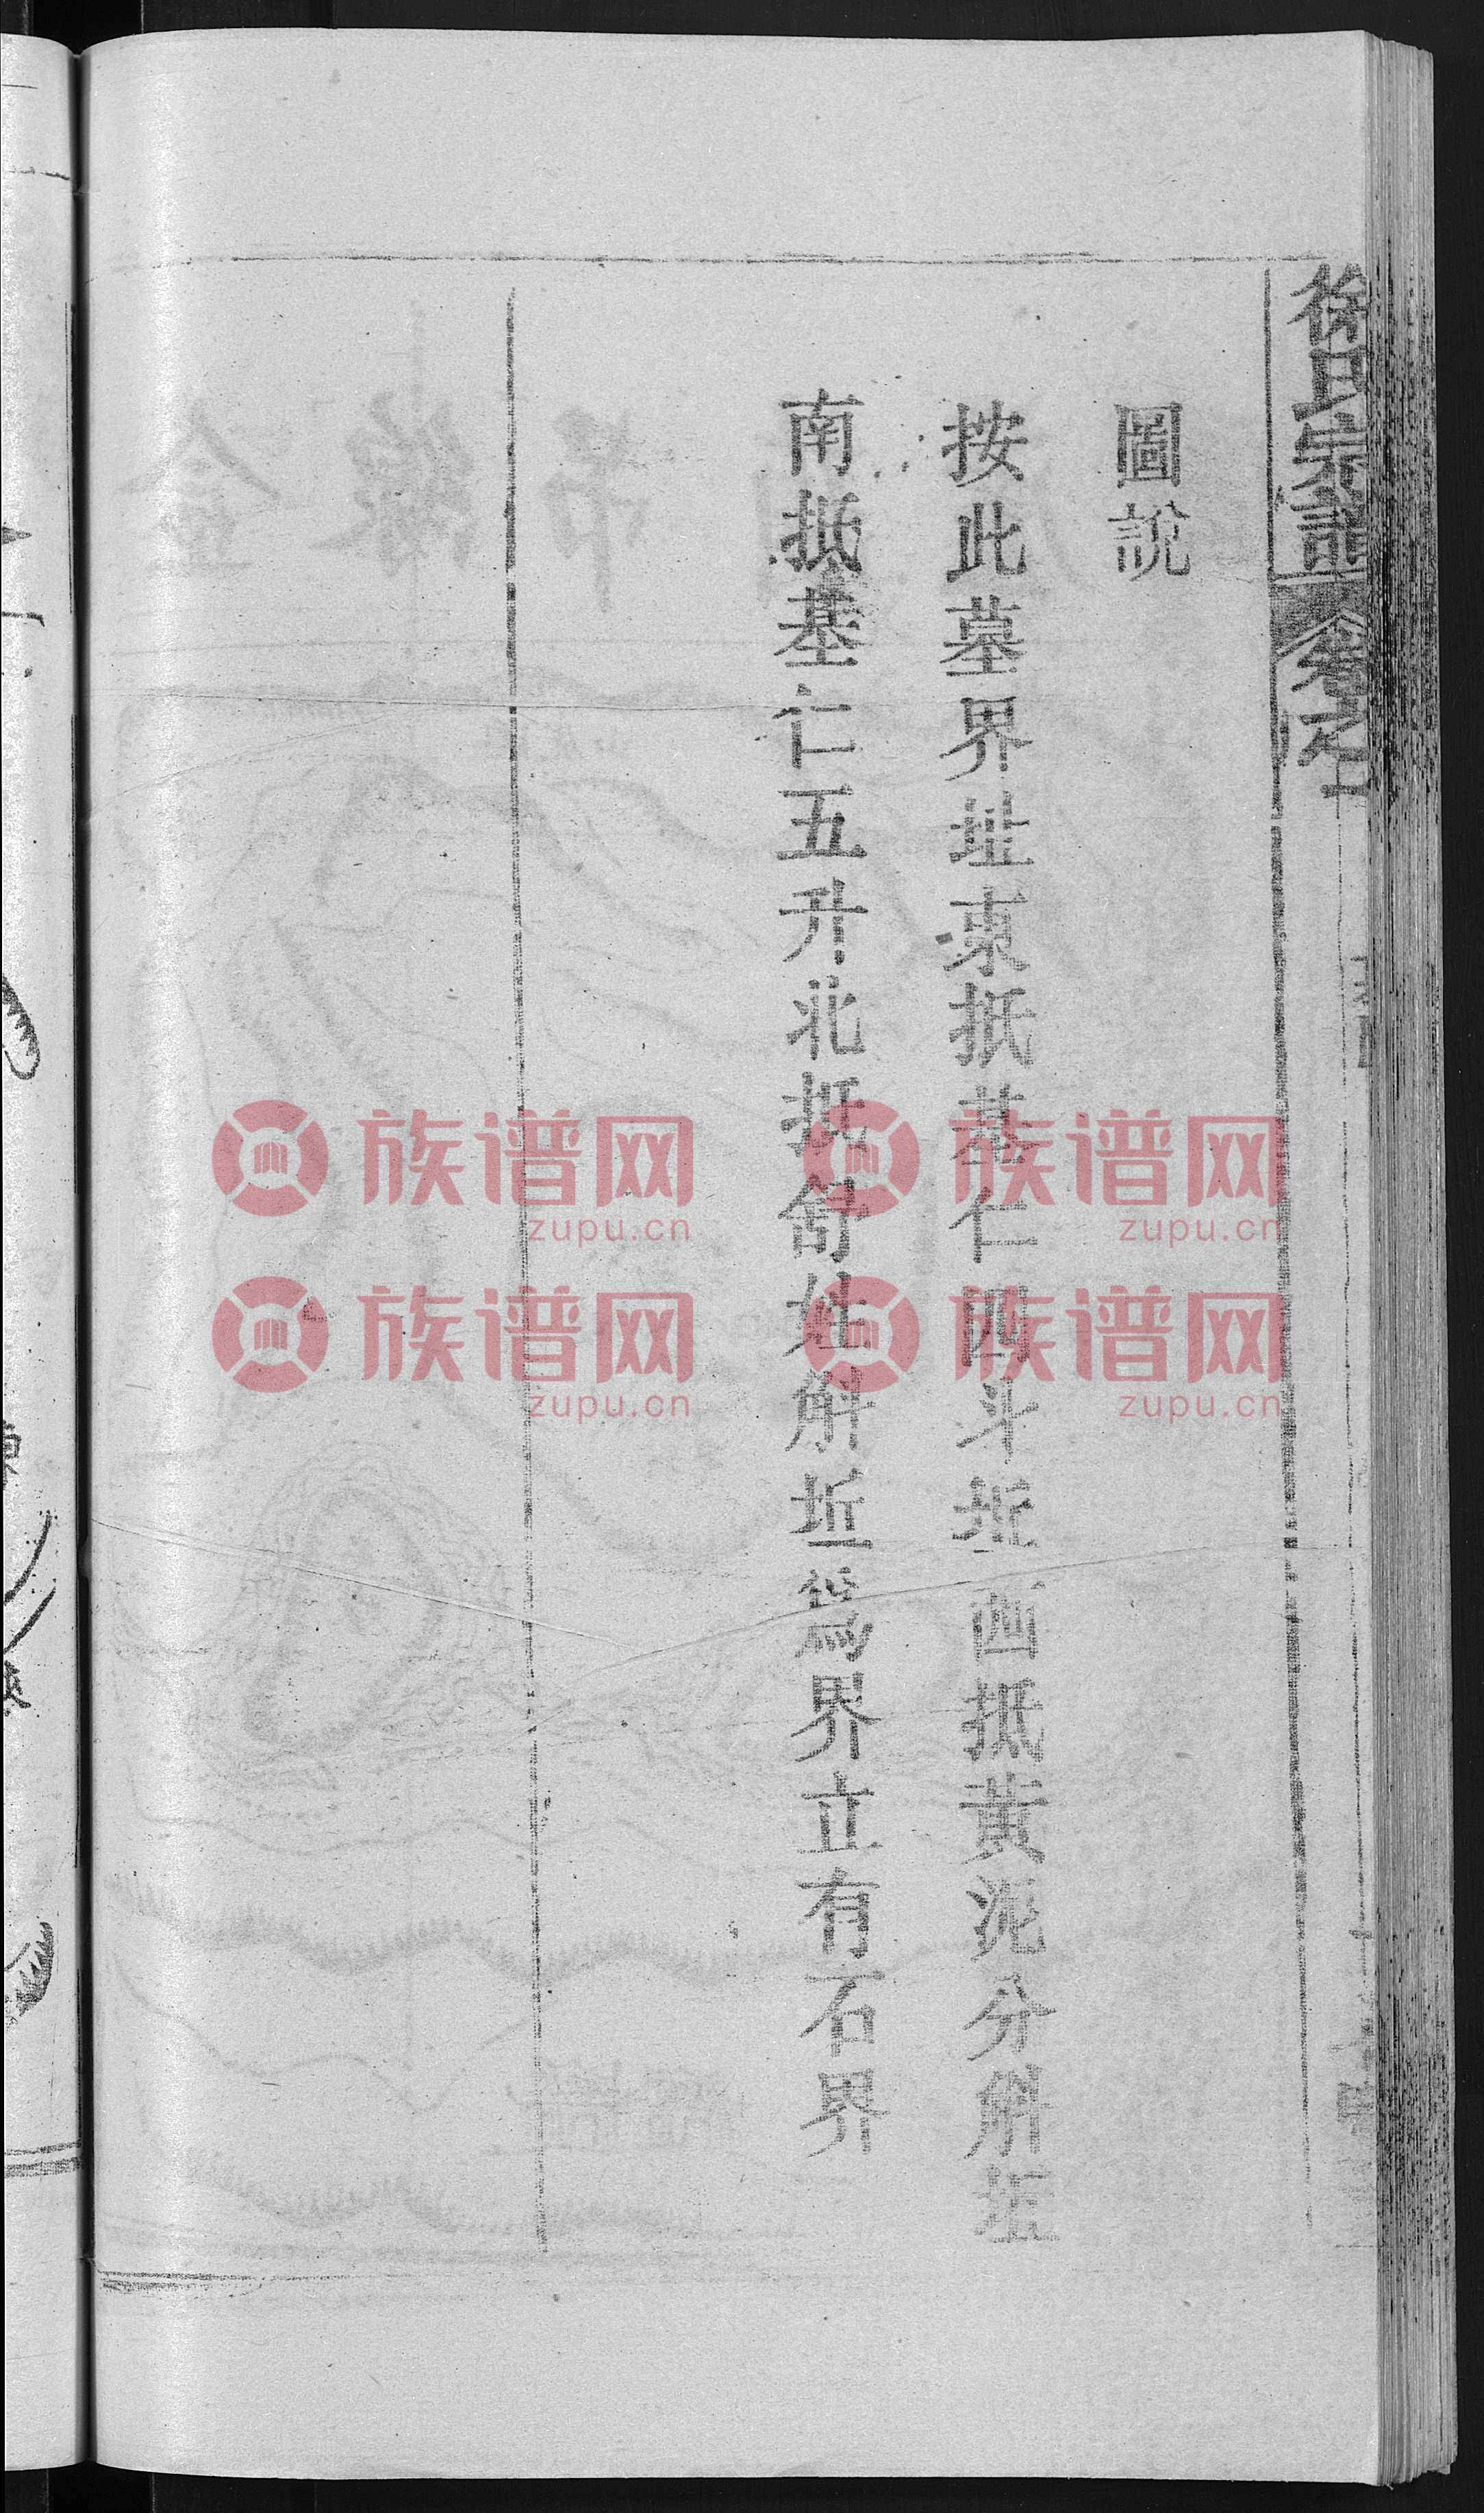 徐氏宗譜
卷之
圖說
按此墓界址東抵基仁四斗坵西抵黃泥分斛坵
南抵基仁五升北抵舒姓斛坵為界立有石界
族谱网
zupu.cn
族谱网
zupu.cn
族谱网
zupu.cn
族谱网
zupu.cn